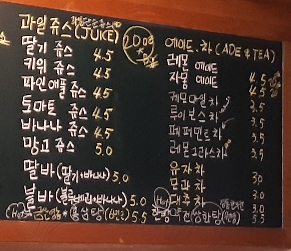 과일쥬스(JUICE)
딸기 쥬스 4.5
키위 쥬스 4.5
파인애플 쥬스 4.5
토마토 쥬스 4.5
바나나 쥬스 4.5
망고 쥬스 5.0
딸바(딸기+바나나) 5.0
블바(블루베리+바나나) 5.0
(Hot) 5.5
에이드.차(ADE & TEA)
레몬 에이드 4.5
자몽 에이드 4.5
케모마일차 3.5
루이보스차 3.5
페퍼민트차 3.5
레몬그라스차 3.5
유자차 3.0
모과차 3.0
(Hot) 대추차 5.0
5.5